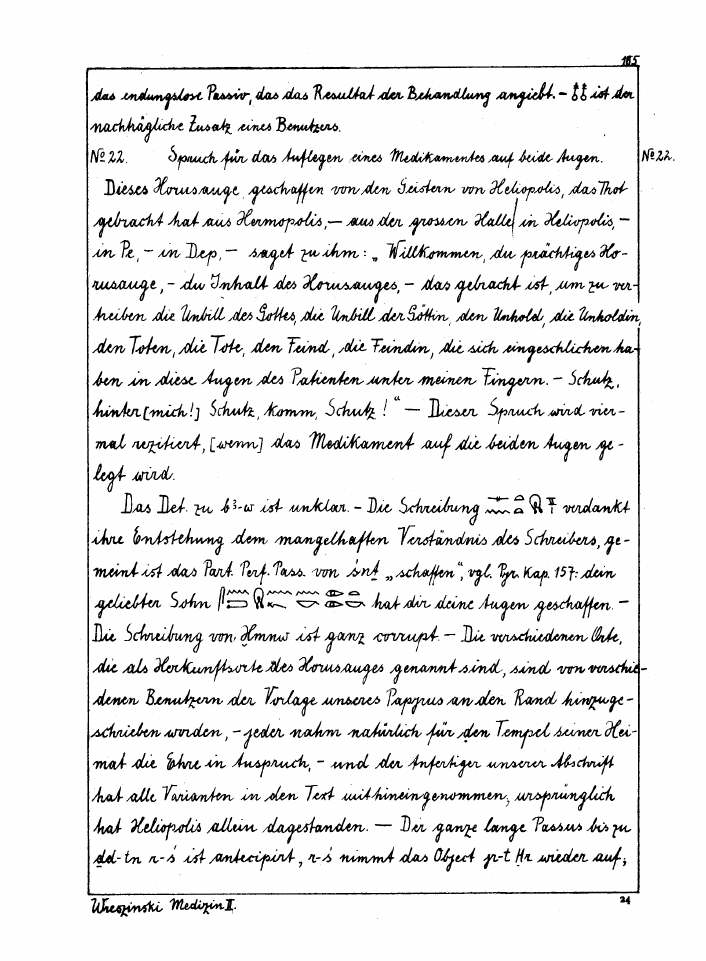 185
das endungslose Passiv, das das Resultat der Behandlung angiebt. – 𓄤𓄤 ist der
nachträgliche Zusatz eines Benutzers.
No 22. Spruch für das Auflegen eines Medikamentes auf beide Augen. No 22.
Dieses Horusauge, geschaffen von den Geistern von Heliopolis, das Thot
gebracht hat aus Hermopolis, – aus der grossen Halle in Heliopolis, –
in Pe, – in Dep, – saget zu ihm: „Willkommen, du prächtiges Ho-
rusauge, – du Inhalt des Horusauges, – das gebracht ist, um zu ver-
treiben die Unbill des Gottes, die Unbill der Göttin, den Unhold, die Unholdin,
den Toten, die Tote, den Feind, die Feindin, die sich eingeschlichen ha-
ben in diese Augen des Patienten unter meinen Fingern. – Schutz,
hinter [mich!] Schutz, komm, Schutz!“ – Dieser Spruch wird vier-
mal rezitiert, [wenn] das Medikament auf die beiden Augen ge-
legt wird.
Das Det. zu bꜣ-w ist unklar. – Die Schreibung verdankt
ihre Entstehung dem mangelhaften Verständnis des Schreibers, ge-
meint ist das Part. Perf. Pass. von śnṯ „schaffen“, vgl. Pyr. Kap. 157: dein
geliebter Sohn hat dir deine Augen geschaffen. –
Die Schreibung von Ḫmnw ist ganz corrupt. – Die verschiedenen Orte,
die als Herkunftsorte des Horusauges genannt sind, sind von verschie-
denen Benutzern der Vorlage unseres Papyrus an den Rand hinzuge-
schrieben worden, – jeder nahm natürlich für den Tempel seiner Hei-
mat die Ehre in Anspruch, – und der Anfertiger unserer Abschrift
hat alle Varianten in den Text mithineingenommen, ursprünglich
hat Heliopolis allein dagestanden. – Der ganze lange Passus bis zu
ḏd-tn r-ś ist antecipirt, r-ś nimmt das Object jr-t Ḥr wieder auf;
Wreszinski Medizin II. 24